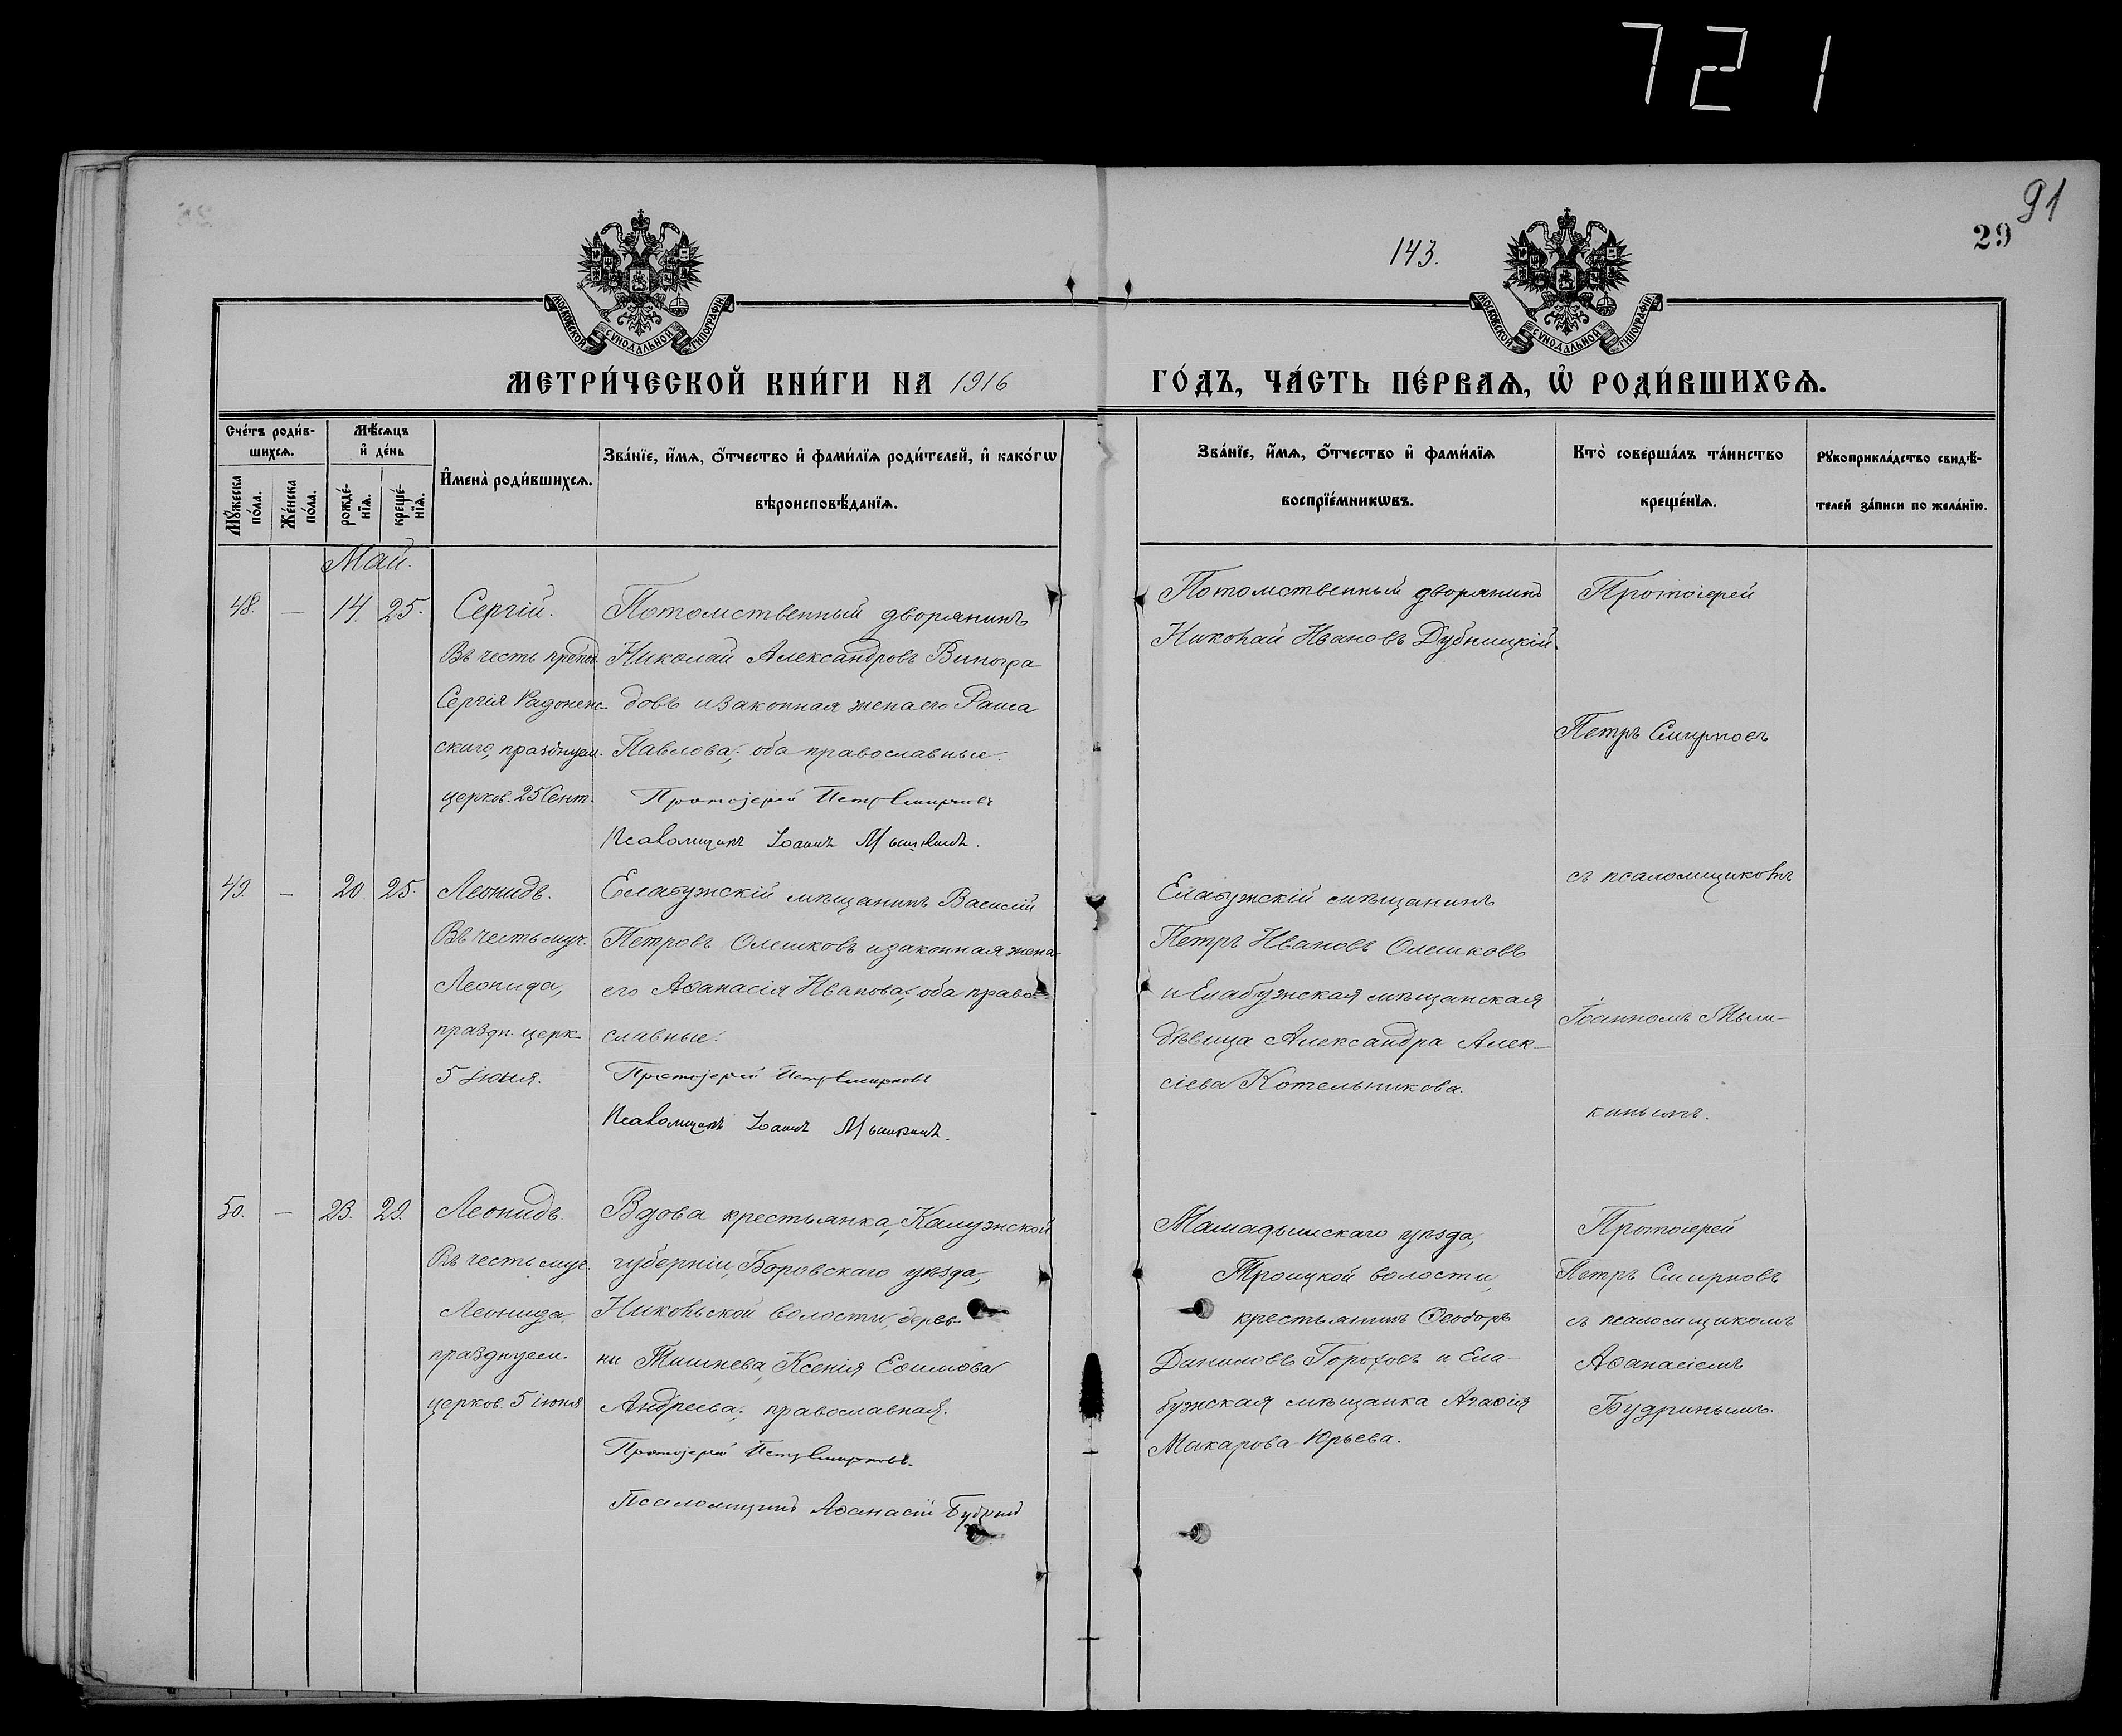 721
91
29
143.
МОСКОВСКОЙ СѴНОДАЛЬНОЙ ТИПОГРАФІИ
МОСКОВСКОЙ СѴНОДАЛЬНОЙ ТИПОГРАФІИ
МЕТРИ́ЧЕСКОЙ КНИ́ГИ НА 1916
ГО́ДЪ, ЧА́СТЬ ПЕ́РВАѦ, Ѡ҆ РОДИ́ВШИХСѦ.
Сче́тъ роди́в-
шихсѧ.
Мꙋ́жеска по́ла.
Же́нска по́ла.
Мѣ́сѧцъ
и҆ де́нь
рожде́-нїѧ.
креще́-нїѧ.
И҆мена̀ роди́вшихсѧ.
Зва́нїе, и҆́мѧ, ѻ҆́тчество и҆ фами́лїѧ роди́телей, и҆ како́гѡ
вѣроисповѣ́данїѧ.
Зва́нїе, и҆́мѧ, ѻ҆́тчество и҆ фами́лїѧ
воспрїе́мникѡвъ.
Кто̀ соверша́лъ та́инство
креще́нїѧ.
Рꙋкоприкла́дство свидѣ́-
телей за́писи по жела́нїю.
Май.
48. — 14. 25.
Сергій.
Въ честь препод.
Сергія Радонеж-
скаго, празднуем.
церков. 25 Сент.
Потомственный дворянинъ
Николай Александровъ Виногра
довъ и законная жена его Раиса
Павлова; оба православные.
Протоіерей Петръ Смирновъ
Псаломщикъ Іоаннъ Мышкинъ.
Потомственный дворянинъ
Николай Ивановъ Дубницкій.
Протоіерей
Петръ Смирновъ
съ псаломщикомъ
Іоанномъ Мыш-
кинымъ.
49. — 20. 25.
Леонидъ.
Въ честь муч.
Леонида,
праздн. церк.
5 Іюня.
Елабужскій мѣщанинъ Василій
Петровъ Олешковъ и законная жена
его Аѳанасія Иванова; оба право-
славные.
Протоіерей Петръ Смирновъ
Псаломщикъ Іоаннъ Мышкинъ.
Елабужскій мѣщанинъ
Петръ Ивановъ Олешковъ
и Елабужская мѣщанская
дѣвица Александра Алек-
сіева Котельникова.
50. — 23. 29.
Леонидъ.
Въ честь муч.
Леонида.
празднуем.
церков. 5 іюня
Вдова крестьянка, Калужской
губерніи, Боровскаго уѣзда,
Никольской волости, дерев-
ни Тишнева, Ксенія Евѳимова
Андреева; православная.
Протоіерей Петръ Смирновъ.
Псаломщикъ Аѳанасій Будринъ
Мамадышскаго уѣзда,
Троицкой волости,
крестьянинъ Ѳеодоръ
Даниловъ Гороховъ и Ела-
бужская мѣщанка Агаѳія
Макарова Юрьева.
Протоіерей
Петръ Смирновъ
съ псаломщикомъ
Аѳанасіемъ
Будринымъ.